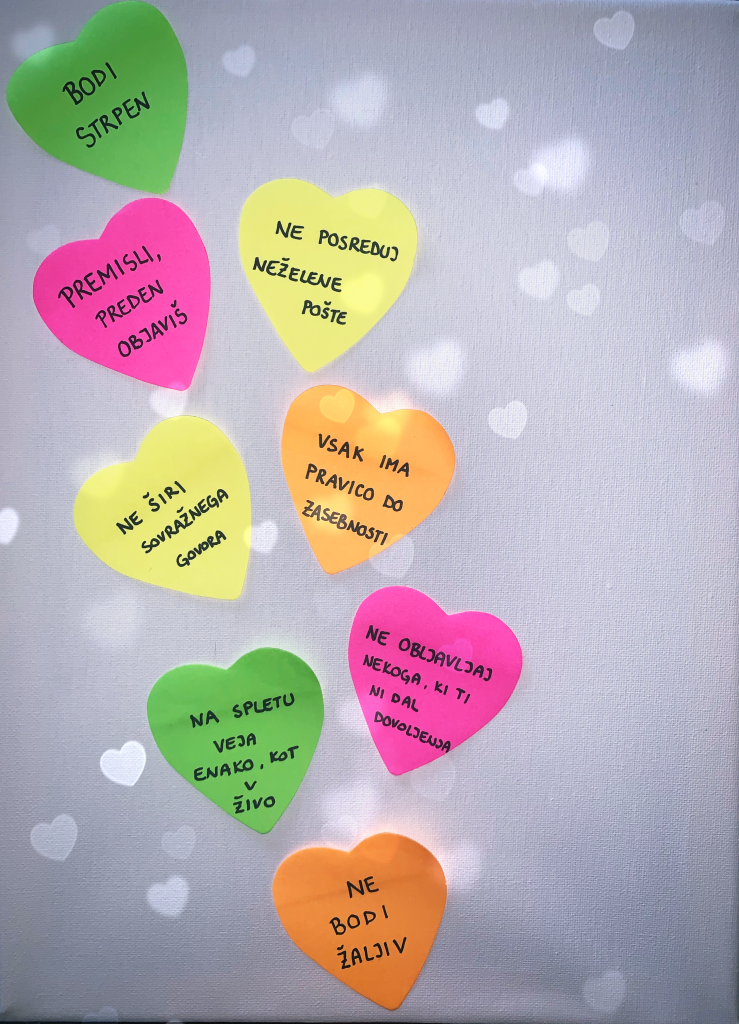 BODI
STRPEN
PREMISLI,
PREDEN
OBJAVIŠ
NE POSREDUJ
NEŽELENE
POŠTE
NE ŠIRI
SOVRAŽNEGA
GOVORA
VSAK IMA
PRAVICO DO
ZASEBNOSTI
NE OBLJAVLJAJ
NEKOGA, KI TI
NI DAL
DOVOLJENJA
NA SPLETU
VEJA
ENAKO, KOT
V
ŽIVO
NE
BODI
ŽALJIV